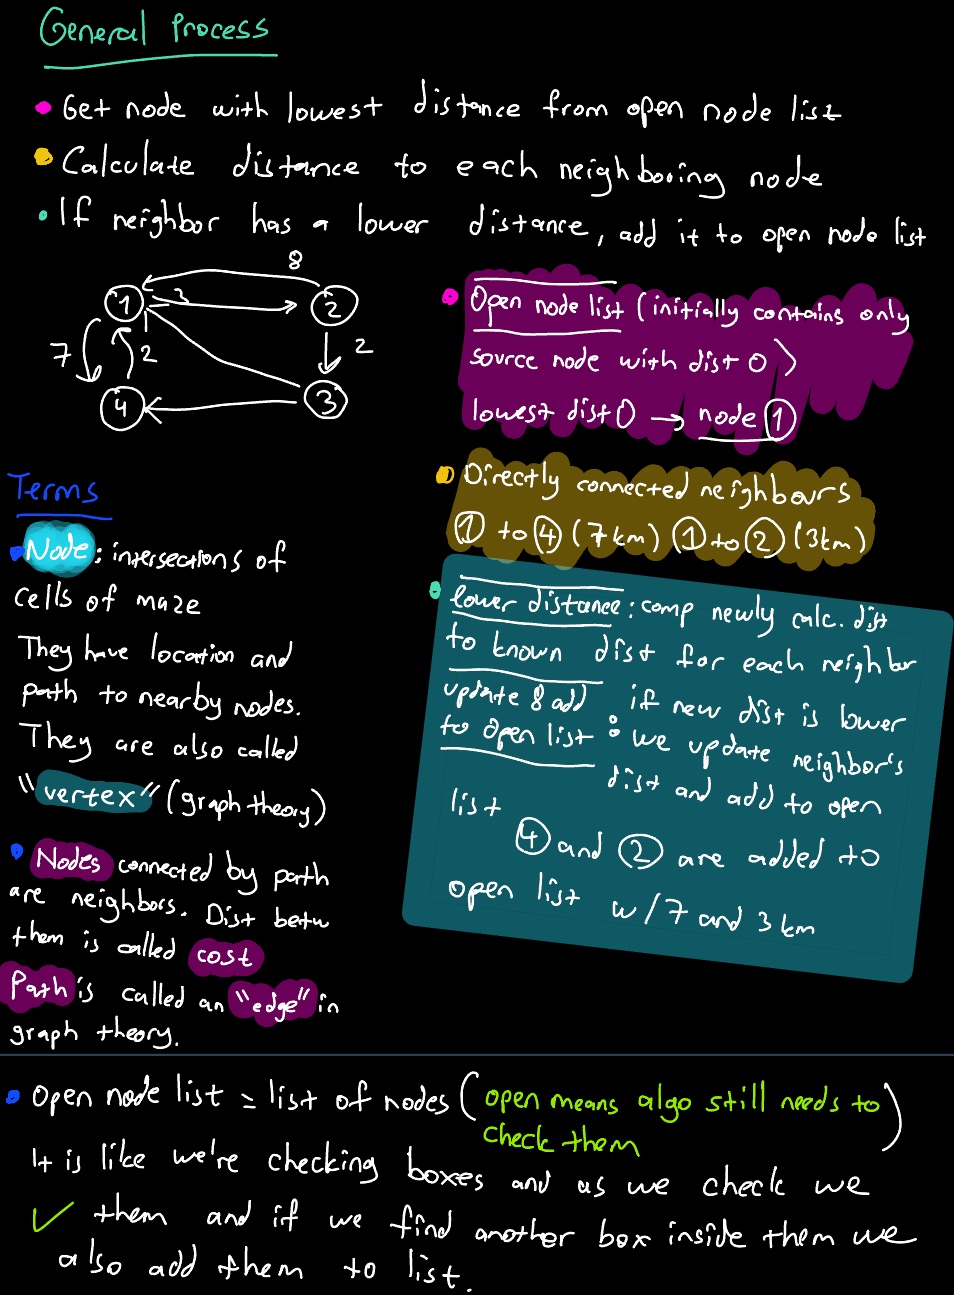 General Process
• Get node with lowest distance from open node list
• Calculate distance to each neighboring node
• If neighbor has a lower distance, add it to open node list
8
1
3
2
7
2
2
4
3
• Open node list (initially contains only
source node with dist 0)
lowest dist 0 → node 1
• Directly connected neighbours
1 to 4 (7km) 1 to 2 (3km)
• lower distance: comp newly calc. dist
to known dist for each neighbor
update & add if new dist is lower
to open list : we update neighbor's
dist and add to open
list
4 and 2 are added to
open list w/7 and 3 km
Terms
• Node: intersections of
cells of maze
They have location and
path to nearby nodes.
They are also called
"vertex" (graph theory)
• Nodes connected by path
are neighbors. Dist betw
them is called cost
Path is called an "edge" in
graph theory.
• Open node list = list of nodes (open means algo still needs to
check them)
It is like we're checking boxes and as we check we
✓ them and if we find another box inside them we
also add them to list.